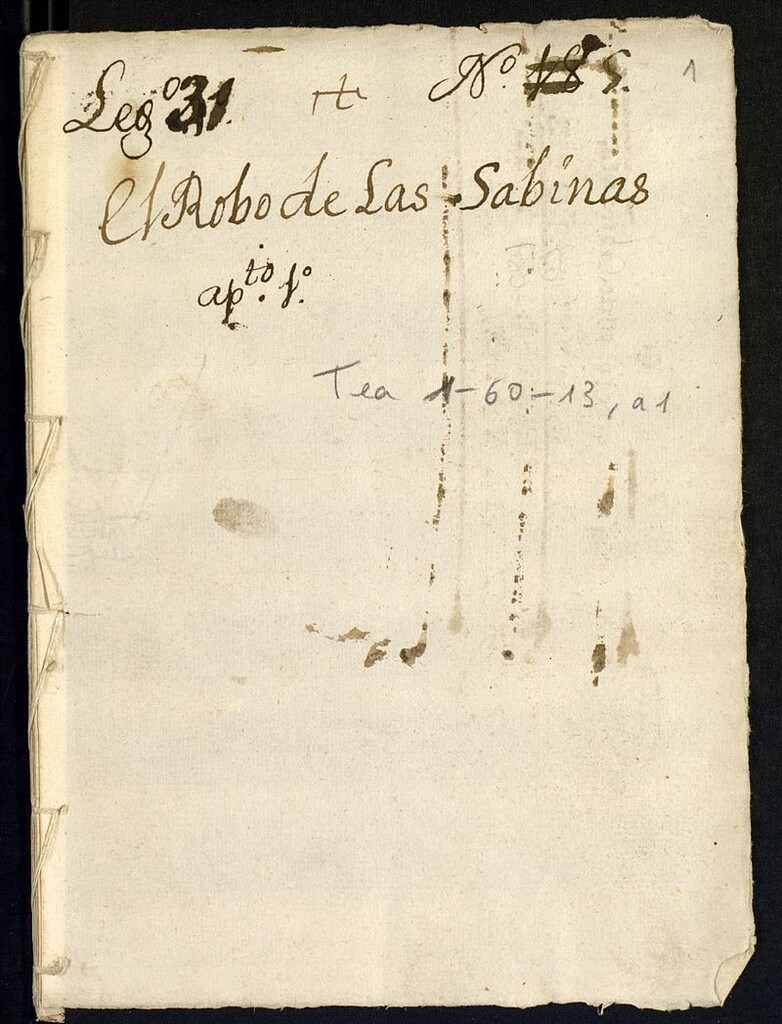 Leg.º 31. N.º 18 5. 1
El Robo de Las Sabinas
ap.to 1.º
Tea 1-60-13, a1